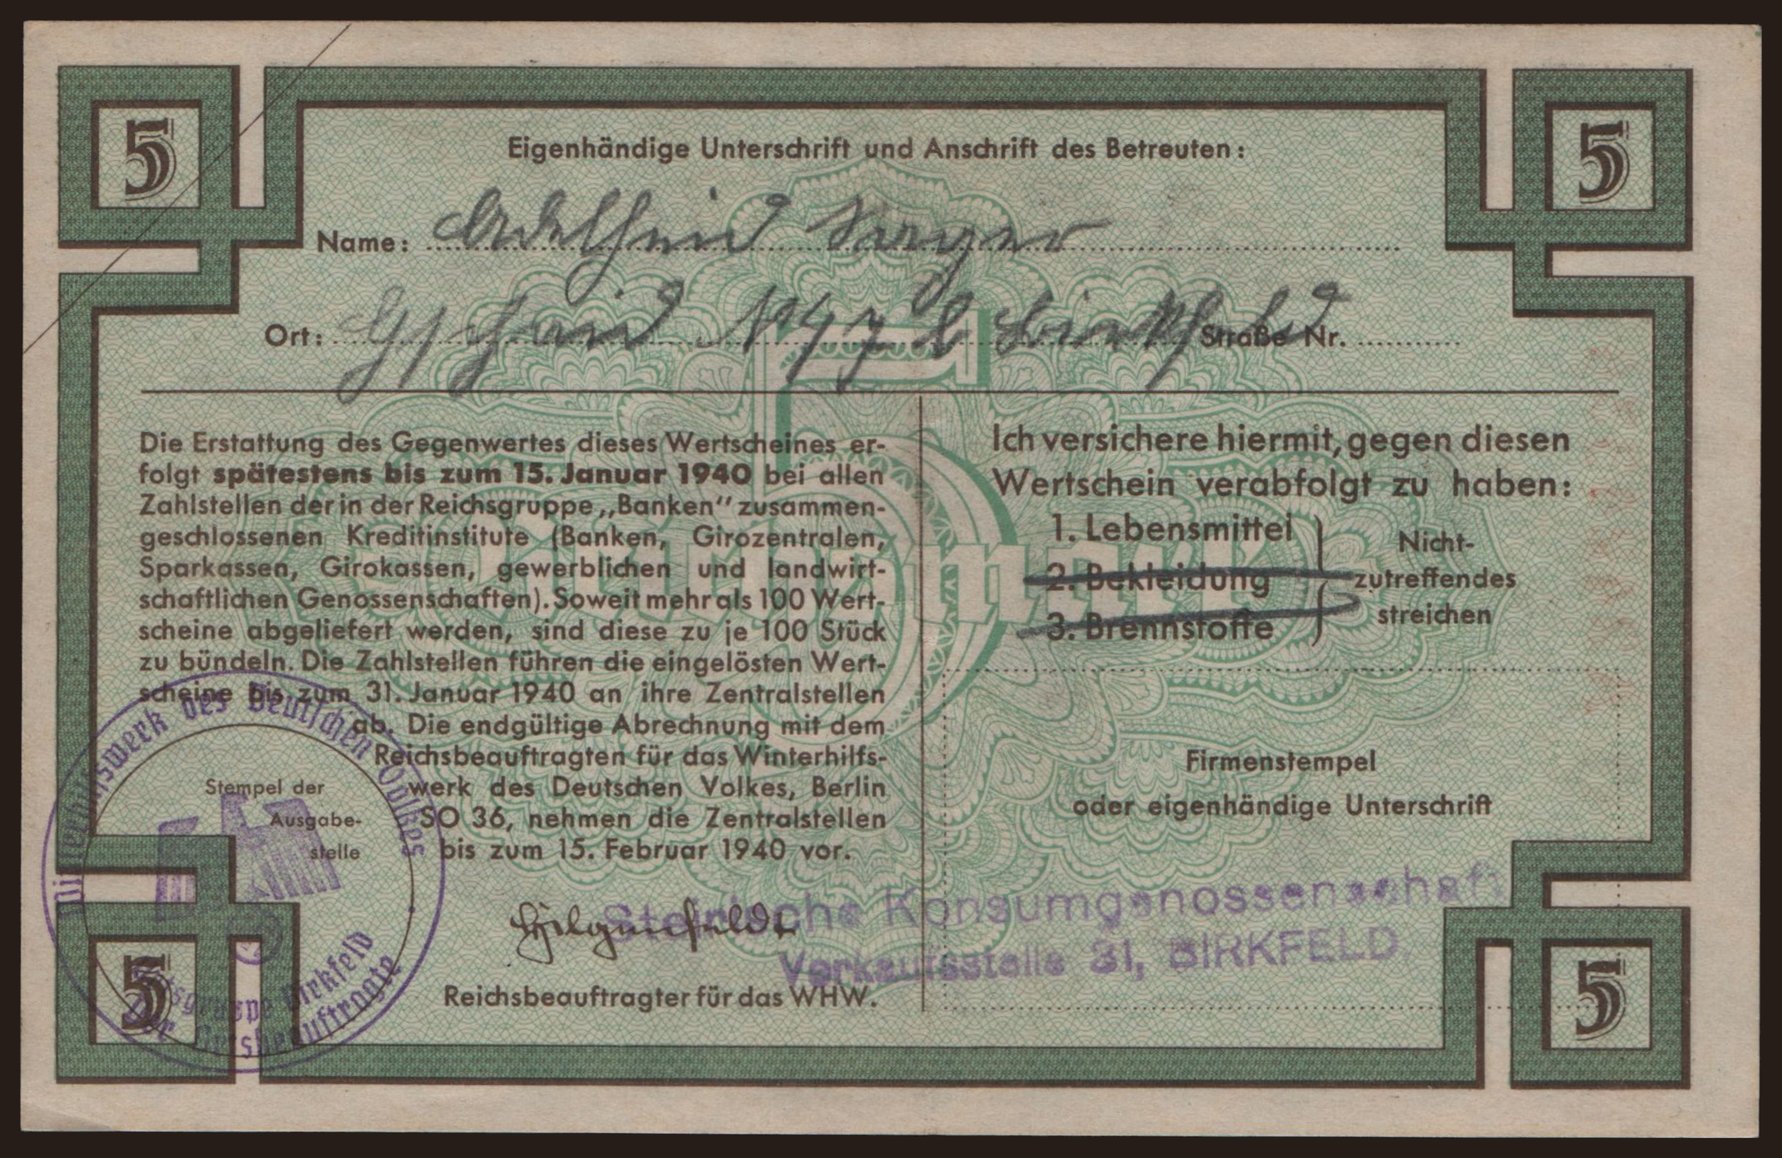 5
5
Eigenhändige Unterschrift und Anschrift des Betreuten:
Name: Adelheid
Ort: Gschaid No 47 b Birkfeld Straße Nr.
Die Erstattung des Gegenwertes dieses Wertscheines er-
folgt spätestens bis zum 15. Januar 1940 bei allen
Zahlstellen der in der Reichsgruppe „Banken" zusammen-
geschlossenen Kreditinstitute (Banken, Girozentralen,
Sparkassen, Girokassen, gewerblichen und landwirt-
schaftlichen Genossenschaften). Soweit mehr als 100 Wert-
scheine abgeliefert werden, sind diese zu je 100 Stück
zu bündeln. Die Zahlstellen führen die eingelösten Wert-
scheine bis zum 31. Januar 1940 an ihre Zentralstellen
ab. Die endgültige Abrechnung mit dem
Reichsbeauftragten für das Winterhilfs-
werk des Deutschen Volkes, Berlin
SO 36, nehmen die Zentralstellen
bis zum 15. Februar 1940 vor.
Hilgenfeldt
Reichsbeauftragter für das WHW.
Stempel der
Ausgabe-
stelle
Winterhilfswerk des Deutschen Volkes
Ortsgruppe Birkfeld
Der Ortsbeauftragte
Ich versichere hiermit, gegen diesen
Wertschein verabfolgt zu haben:
1. Lebensmittel
2. Bekleidung
3. Brennstoffe
Nicht-
zutreffendes
streichen
Firmenstempel
oder eigenhändige Unterschrift
Steirische Konsumgenossenschaft
Verkaufsstelle 31, BIRKFELD.
5 Mark
5
5